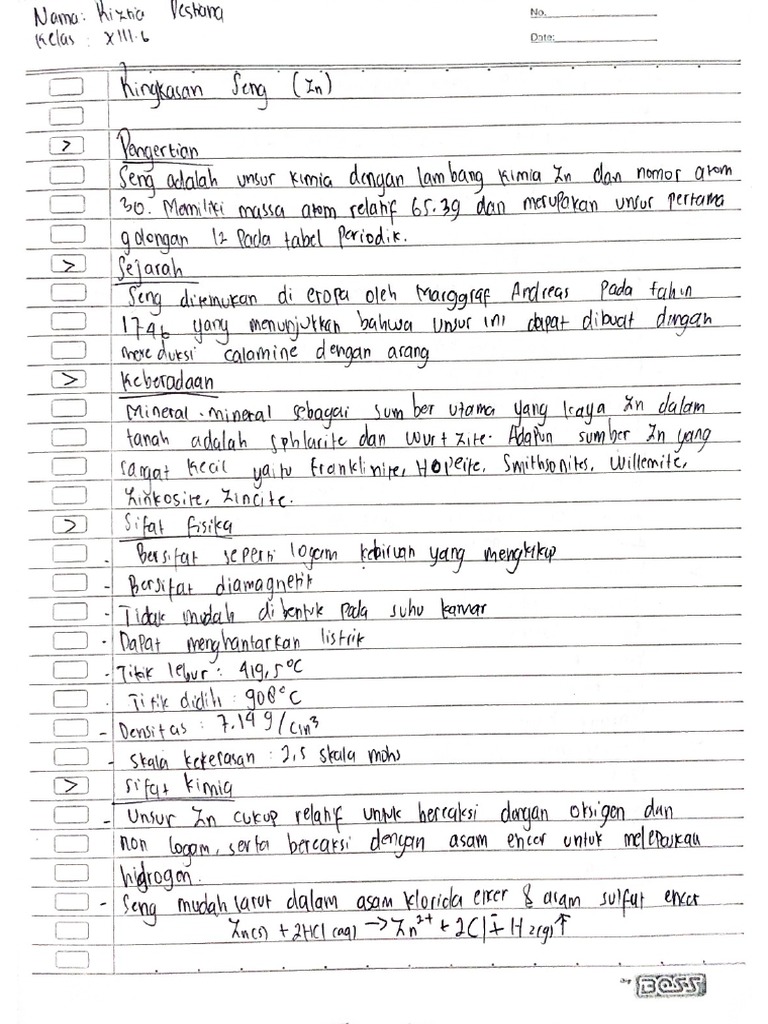 Nama: Rizkia Pestiana
Kelas : XIII.6
No.
Date:
Ringkasan Seng (Zn)
> Pengertian
Seng adalah unsur kimia dengan lambang kimia Zn dan nomor atom
30. Memiliki massa atom relatif 65.39 dan merupakan unsur pertama
golongan 12 pada tabel periodik.
> Sejarah
Seng ditemukan di eropa oleh Marggraf Andreas pada tahun
1746 yang menunjukkan bahwa unsur ini dapat dibuat dengan
mereduksi calamine dengan arang
> Keberadaan
Mineral-mineral sebagai sumber utama yang kaya Zn dalam
tanah adalah sphlarite dan wurtzite. Adapun sumber Zn yang
sangat kecil yaitu franklinite, Hopeite, Smithsonites, Willemite,
Zinkosite, Zincite.
> Sifat fisika
- Bersifat seperti logam kebiruan yang mengkilap
- Bersifat diamagnetik
- Tidak mudah dibentuk pada suhu kamar
- Dapat menghantarkan listrik
- Titik lebur : 419,5°C
- Titik didih : 908°C
- Densitas : 7.14 g/cm³
- Skala kekerasan : 2,5 skala mohs
> Sifat kimia
- Unsur Zn cukup relatif untuk bereaksi dengan oksigen dan
non logam, serta bereaksi dengan asam encer untuk melepaskan
hidrogen.
- Seng mudah larut dalam asam klorida encer & asam sulfat encer
Zn(s) + 2HCl (aq) → Zn²⁺ + 2Cl⁻ + H₂(g)↑
BOSS